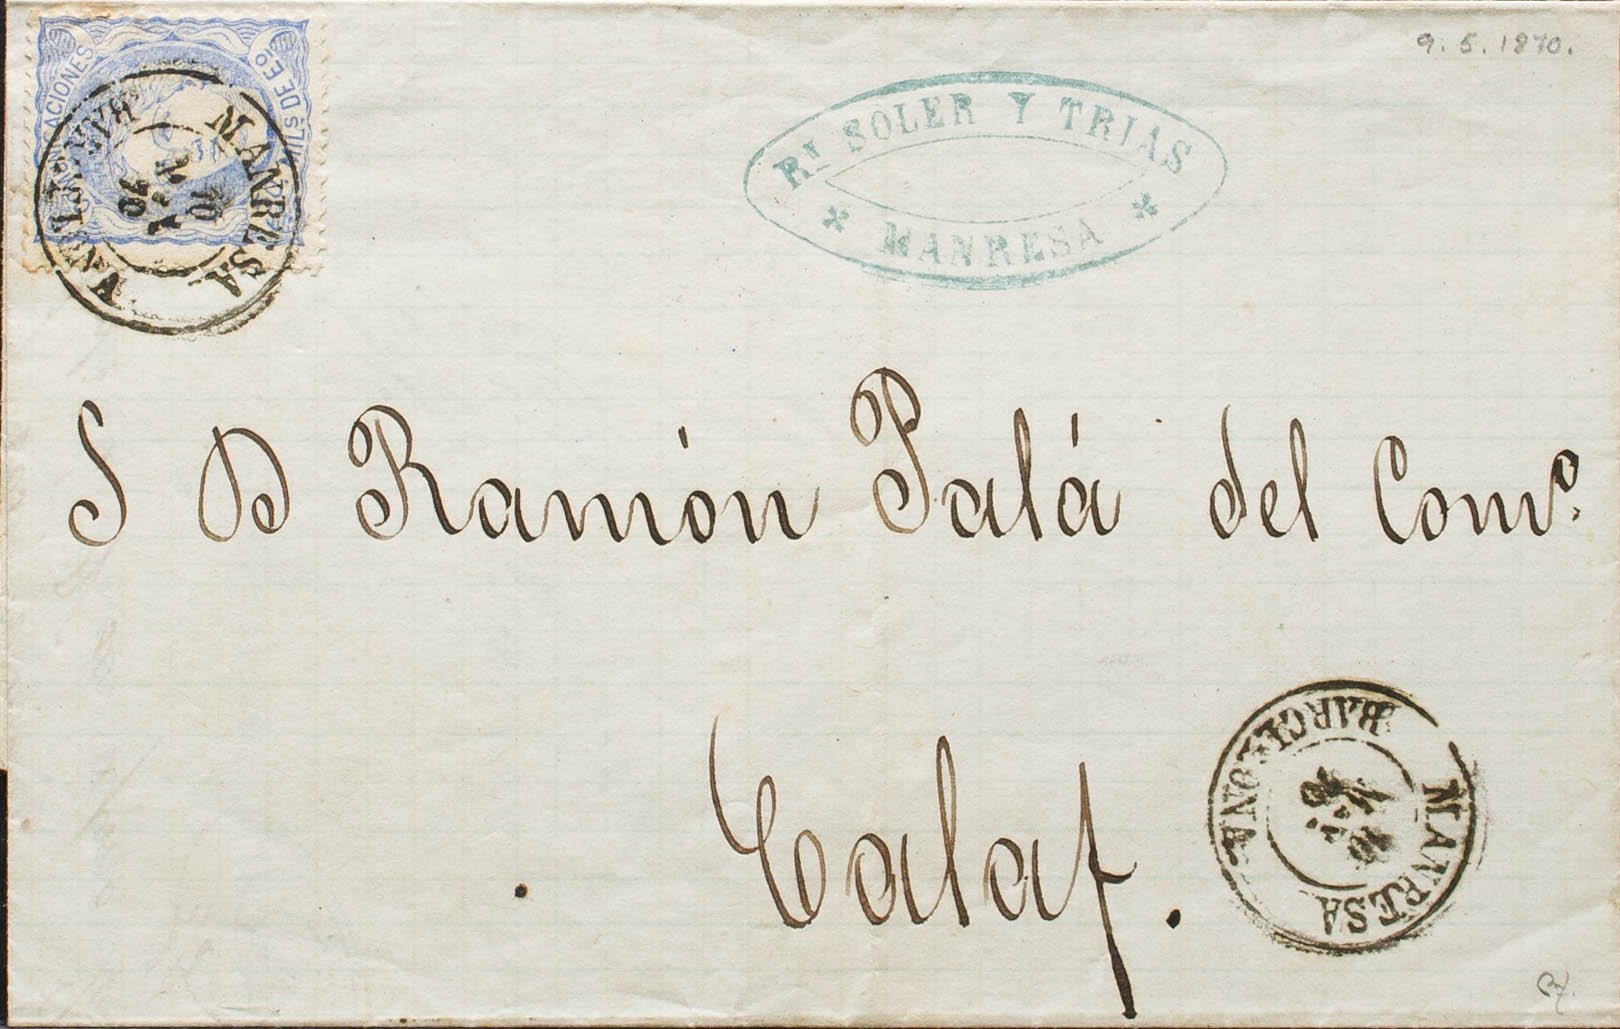 9. 5. 1870.
CACIONES
MILS DE Eo
MANRESA
BARCELONA
10
70
Rl SOLER Y TRIAS
MANRESA
S D Ramón Palá del Comº.
Calaf.
MANRESA
BARCELONA
10